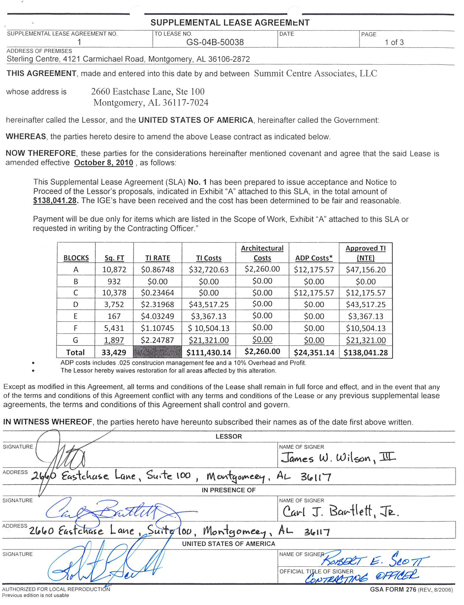 SUPPLEMENTAL LEASE AGREEMENT
SUPPLEMENTAL LEASE AGREEMENT NO. TO LEASE NO. DATE PAGE
1 GS-04B-50038 1 of 3
ADDRESS OF PREMISES
Sterling Centre, 4121 Carmichael Road, Montgomery, AL 36106-2872
THIS AGREEMENT, made and entered into this date by and between Summit Centre Associates, LLC
whose address is 2660 Eastchase Lane, Ste 100
Montgomery, AL 36117-7024
hereinafter called the Lessor, and the UNITED STATES OF AMERICA, hereinafter called the Government:
WHEREAS, the parties hereto desire to amend the above Lease contract as indicated below.
NOW THEREFORE, these parties for the considerations hereinafter mentioned covenant and agree that the said Lease is
amended effective October 8, 2010 , as follows:
This Supplemental Lease Agreement (SLA) No. 1 has been prepared to issue acceptance and Notice to
Proceed of the Lessor's proposals, indicated in Exhibit "A" attached to this SLA, in the total amount of
$138,041.28. The IGE's have been received and the cost has been determined to be fair and reasonable.
Payment will be due only for items which are listed in the Scope of Work, Exhibit "A" attached to this SLA or
requested in writing by the Contracting Officer."
Architectural Approved TI
BLOCKS Sq. FT TI RATE TI Costs Costs ADP Costs* (NTE)
A 10,872 $0.86748 $32,720.63 $2,260.00 $12,175.57 $47,156.20
B 932 $0.00 $0.00 $0.00 $0.00 $0.00
C 10,378 $0.23464 $0.00 $0.00 $12,175.57 $12,175.57
D 3,752 $2.31968 $43,517.25 $0.00 $0.00 $43,517.25
E 167 $4.03249 $3,367.13 $0.00 $0.00 $3,367.13
F 5,431 $1.10745 $ 10,504.13 $0.00 $0.00 $10,504.13
G 1,897 $2.24787 $21,321.00 $0.00 $0.00 $21,321.00
Total 33,429 $111,430.14 $2,260.00 $24,351.14 $138,041.28
• ADP costs includes .025 construcion management fee and a 10% Overhead and Profit.
• The Lessor hereby waives restoration for all areas affected by this alteration.
Except as modified in this Agreement, all terms and conditions of the Lease shall remain in full force and effect, and in the event that any
of the terms and conditions of this Agreement conflict with any terms and conditions of the Lease or any previous supplemental lease
agreements, the terms and conditions of this Agreement shall control and govern.
IN WITNESS WHEREOF, the parties hereto have hereunto subscribed their names as of the date first above written.
LESSOR
SIGNATURE NAME OF SIGNER
James W. Wilson, III
ADDRESS 2660 Eastchase Lane, Suite 100, Montgomery, AL 36117
IN PRESENCE OF
SIGNATURE NAME OF SIGNER
Carl Bartlett Carl J. Bartlett, Jr.
ADDRESS 2660 Eastchase Lane, Suite 100, Montgomery, AL 36117
UNITED STATES OF AMERICA
SIGNATURE NAME OF SIGNER
ROBERT E. SCOTT
OFFICIAL TITLE OF SIGNER
CONTRACTING OFFICER
AUTHORIZED FOR LOCAL REPRODUCTION GSA FORM 276 (REV. 8/2006)
Previous edition is not usable